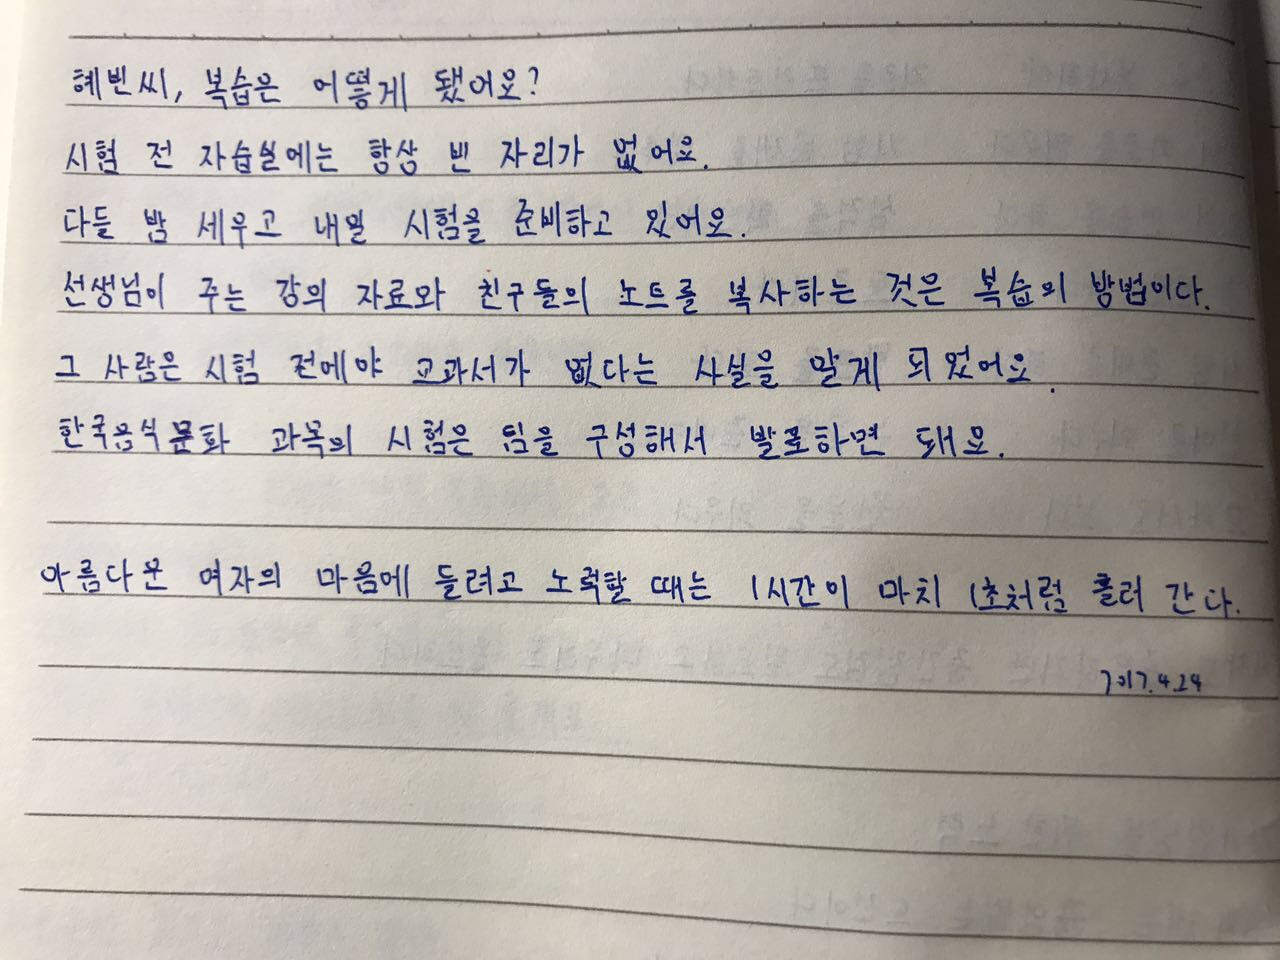 혜빈씨, 복습은 어떻게 됐어요?
시험 전 자습실에는 항상 빈 자리가 없어요.
다들 밤 세우고 내일 시험을 준비하고 있어요.
선생님이 주는 강의 자료와 친구들의 노트를 복사하는 것은 복습의 방법이다.
그 사람은 시험 전에야 교과서가 없다는 사실을 알게 되었어요.
한국음식문화 과목의 시험은 팀을 구성해서 발표하면 돼요.
아름다운 여자의 마음에 들려고 노력할 때는 1시간이 마치 1초처럼 흘러 간다.
2017.4.24